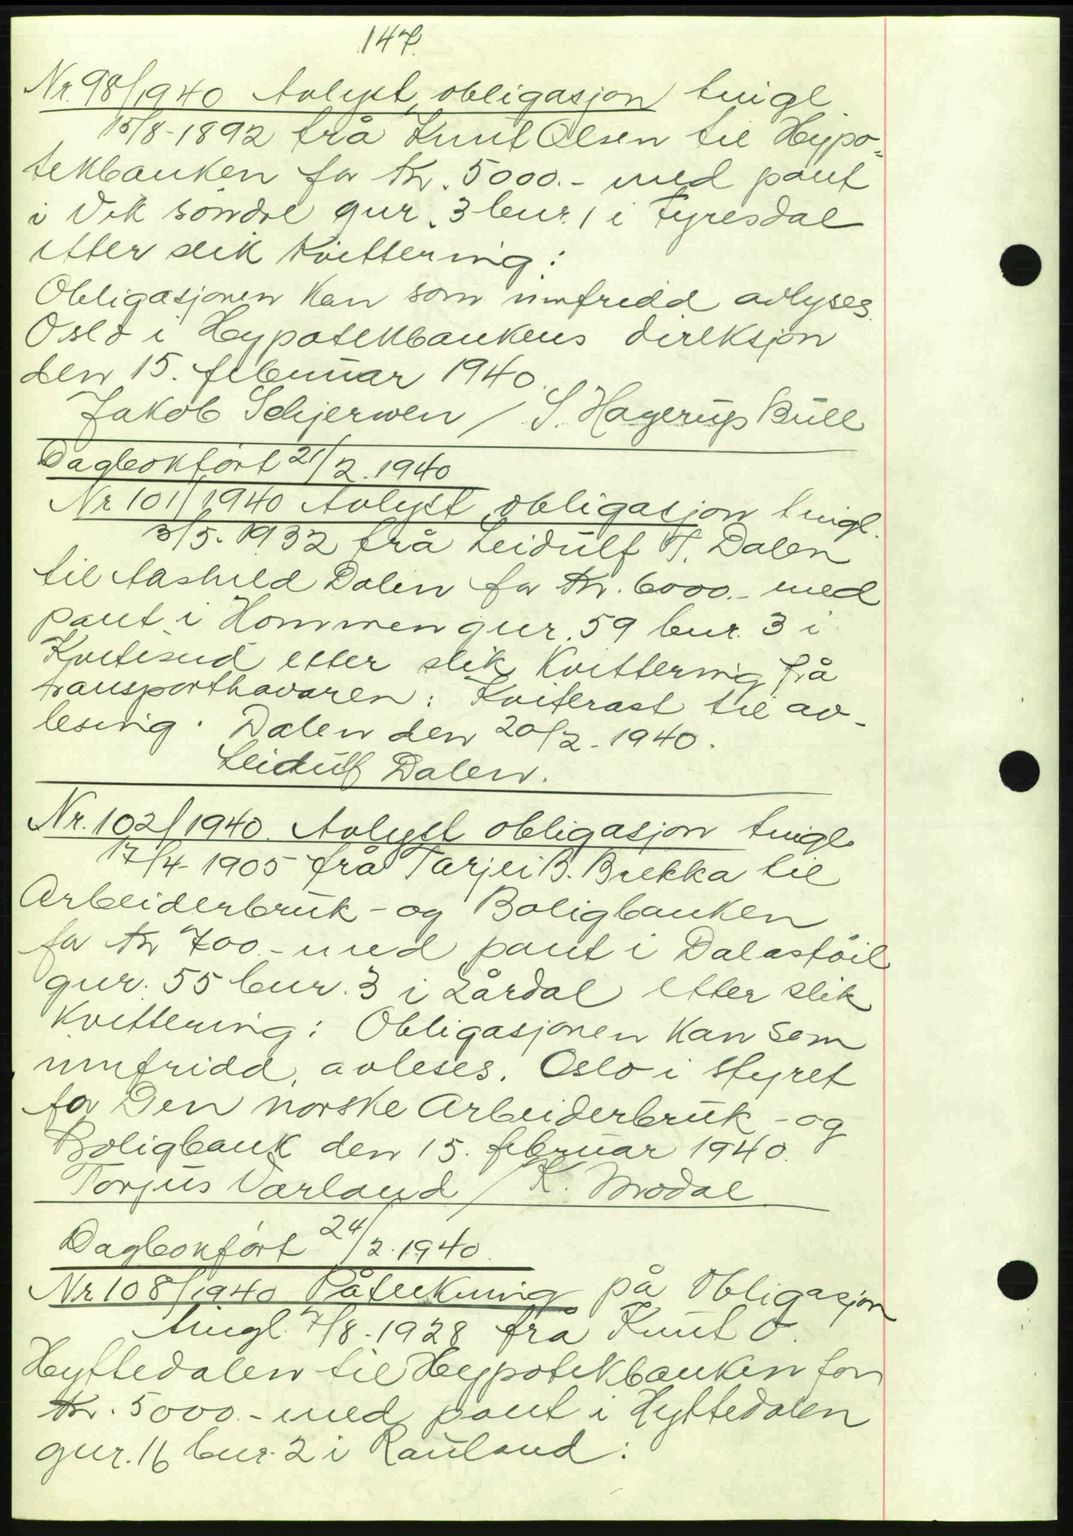 147.
Nr. 98/1940 Avlyst obligasjon tingl.
15/8-1892 frå Knut Olsen til Hypo-
tekbanken for Kr. 5000.- med pant
i Vik søndre gnr. 3 bnr. 1 i Fyresdal
etter slik kvittering:
Obligasjonen kan som innfridd avlyses.
Oslo i Hypotekbankens direksjon
den 15. februar 1940.
Jakob Schjerwen / S. Hagerup Bull
Dagbokført 21/2. 1940
Nr 101/1940 Avlyst obligasjon tingl.
3/5-1932 frå Leidulf T. Dalen
til Aashild Dalen for Kr. 6000.- med
pant i Hommen gnr. 59 bnr. 3 i
Kvitesid etter slik kvittering frå
transporthavaren: Kviterast til av-
lesing. Dalen den 20/2-1940.
Leidulf Dalen.
Nr. 102/1940. Avlyst obligasjon tingl.
17/4-1905 frå Tarjei B. Brekka til
Arbeiderbruk- og Boligbanken
for Kr 700.- med pant i Dalastøil
gnr. 55 bnr. 3 i Lårdal etter slik
kvittering: Obligasjonen kan som
innfridd avleses. Oslo i styret
for Den norske Arbeiderbruk- og
Boligbank den 15. februar 1940.
Torjus Værland / K. Modal
Dagbokført 24/2. 1940.
Nr 108/1940 Påteikning på Obligasjon
tingl. 7/8-1928 frå Knut O.
Hyttedalen til Hypotekbanken for
Kr. 5000.- med pant i Hyttedalen
gnr. 16 bnr. 2 i Rauland: